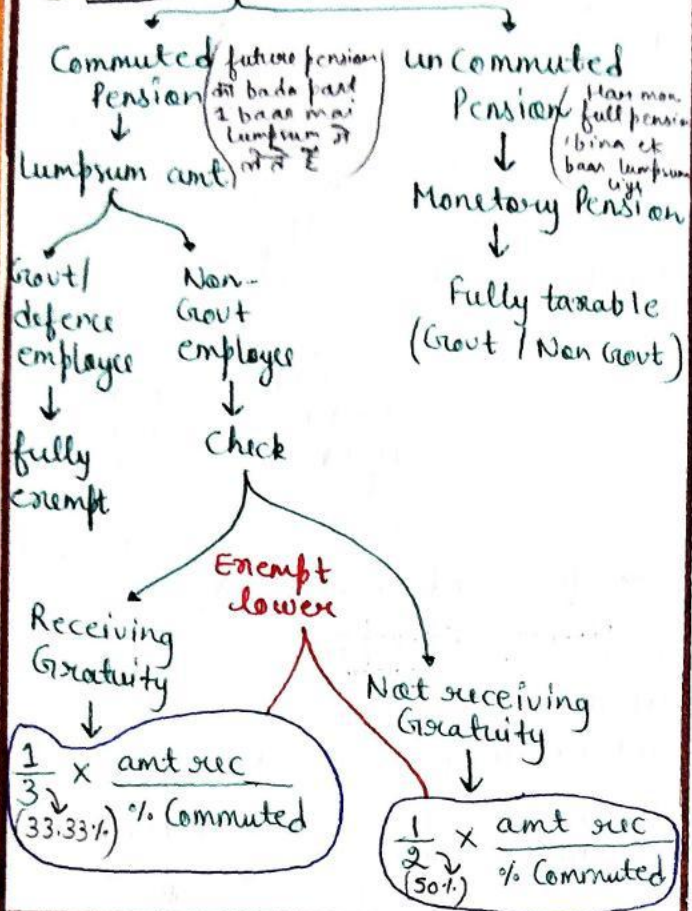 Commuted
Pension
(future pension
का bada part
1 baar mai
Lumpsum में
लेते हैं)
↓
Lumpsum amt.
Govt/
defence
employee
↓
fully
exempt
Non-
Govt
employee
↓
Check
Receiving
Gratuity
↓
1/3 × amt rec / % Commuted
(33.33%)
Exempt
lower
Not receiving
Gratuity
↓
1/2 × amt rec / % Commuted
(50%)
un Commuted
Pension
(Har mon
full pension
bina ek
baar lumpsum
liye
↓
Monetory Pension
↓
Fully taxable
(Govt / Non Govt)